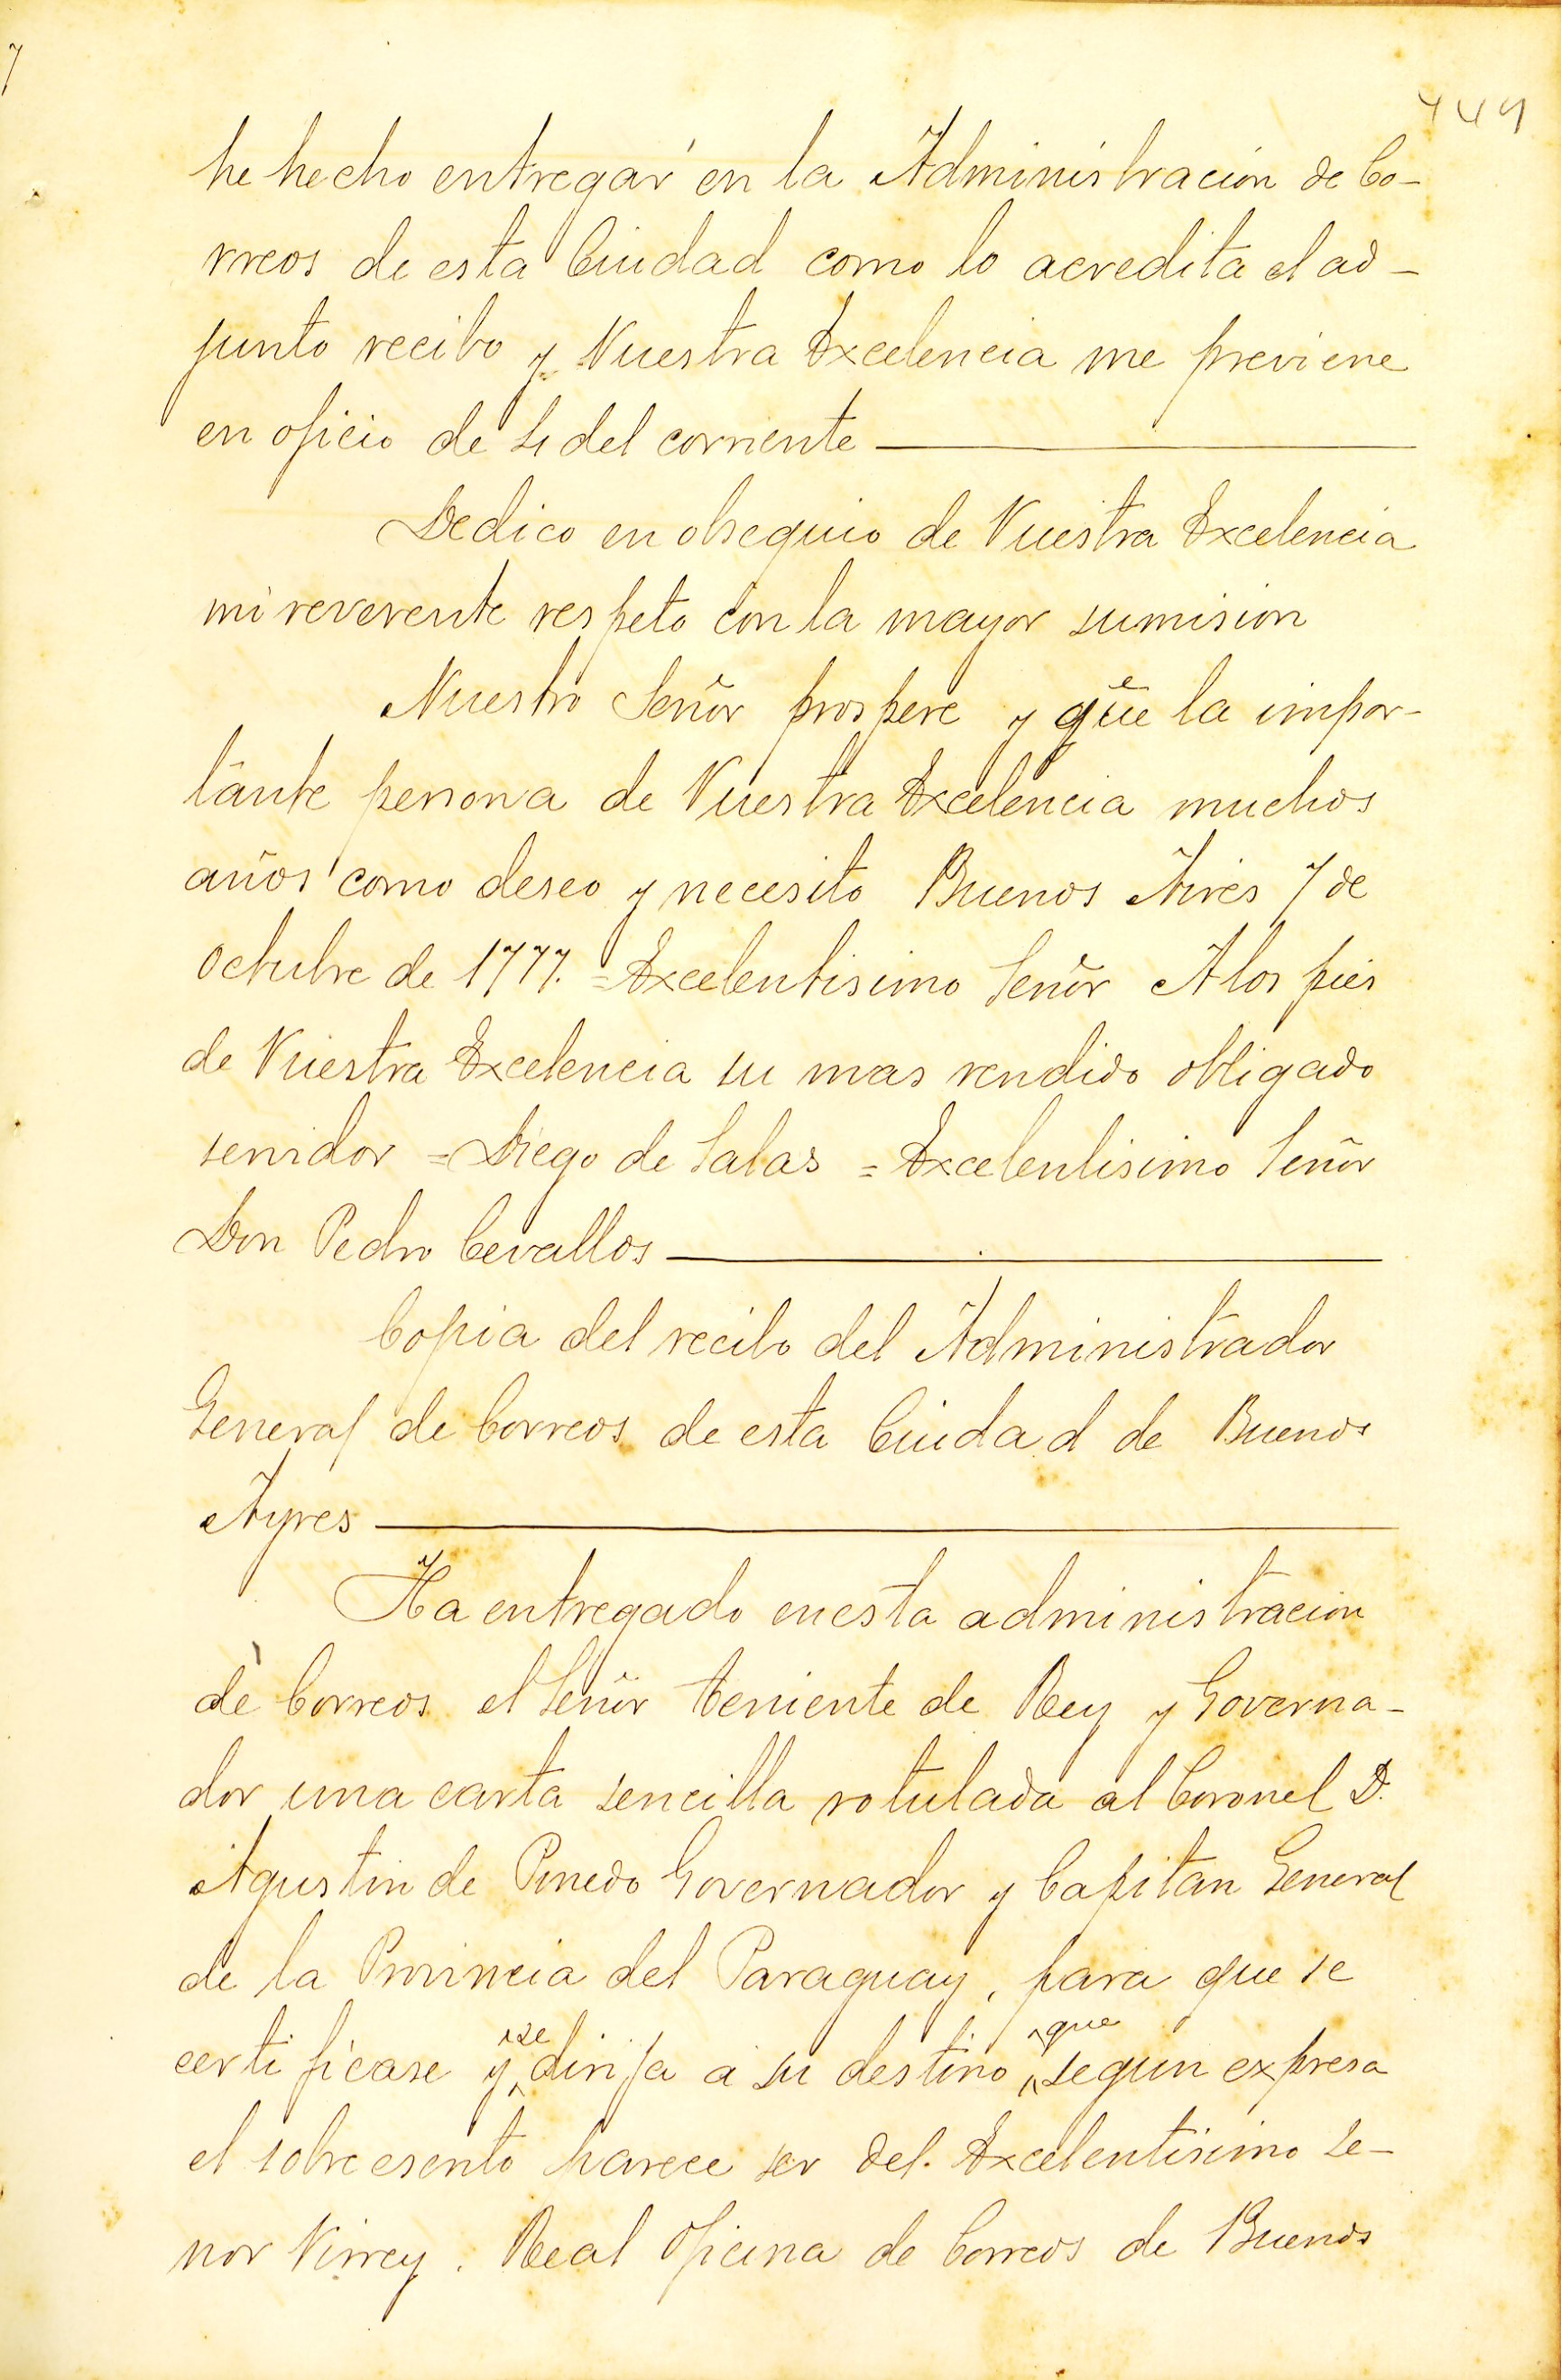 449
he hecho entregar en la Administracion de Co-
rreos de esta Ciudad como lo acredita el ad-
junto recibo y Vuestra Excelencia me previene
en oficio de 4 del corriente
Dedico en obsequio de Vuestra Excelencia
mi reverente respeto con la mayor sumision
Nuestro Señor prospere y que la impor-
tante persona de Vuestra Excelencia muchos
años como deseo y necesito Buenos Aires 7 de
octubre de 1777. = Excelentisimo Señor A los pies
de Vuestra Excelencia su mas rendido obligado
servidor = Diego de Salas = Excelentisimo Señor
Don Pedro Cevallos
Copia del recibo del Administrador
General de Correos de esta Ciudad de Buenos
Ayres
Ha entregado en esta administracion
de Correos el Señor teniente de Rey y Governa-
dor una carta sencilla rotulada al Coronel D.
Agustin de Pinedo Governador y Capitan General
de la Provincia del Paraguay, para que se
certificase y se dirija a su destino que segun expresa
el sobreescrito parece ser del. Excelentisimo Se-
nor Virrey. Real Oficina de Correos de Buenos